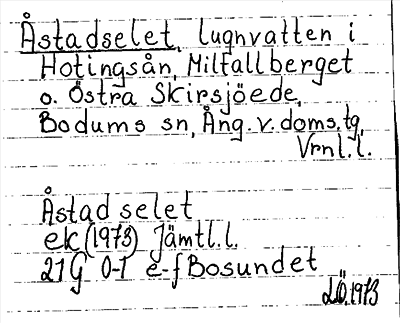 Åstadselet, lugnvatten i
Hotingsån, Milfallberget
o. Östra Skirsjöede,
Bodums sn, Ång. v. doms. tg,
Vrnl. l.
Åstadselet
ek (1973) Jämtl. l.
21G 0-1 e-f Bosundet
LÖ. 1973